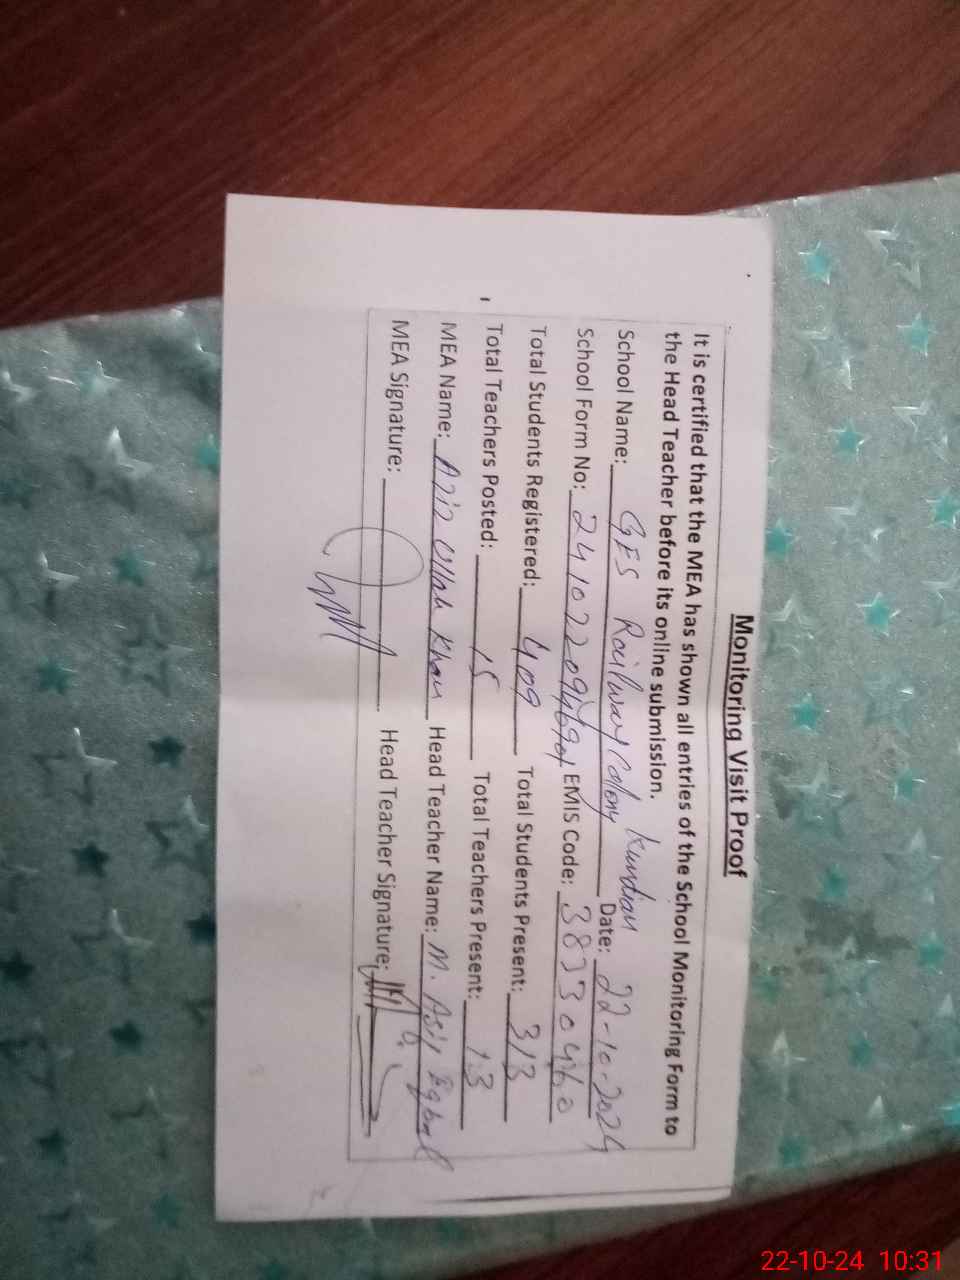 Monitoring Visit Proof
It is certified that the MEA has shown all entries of the School Monitoring Form to
the Head Teacher before its online submission.
School Name: GES Railway Colony Kundian Date: 22-10-2024
School Form No: EMIS Code:
Total Students Registered: 409 Total Students Present: 313
Total Teachers Posted: 15 Total Teachers Present: 13
MEA Name: Aziz Ullah Khan Head Teacher Name: M. Asif Iqbal
MEA Signature: Head Teacher Signature:
22-10-24 10:31